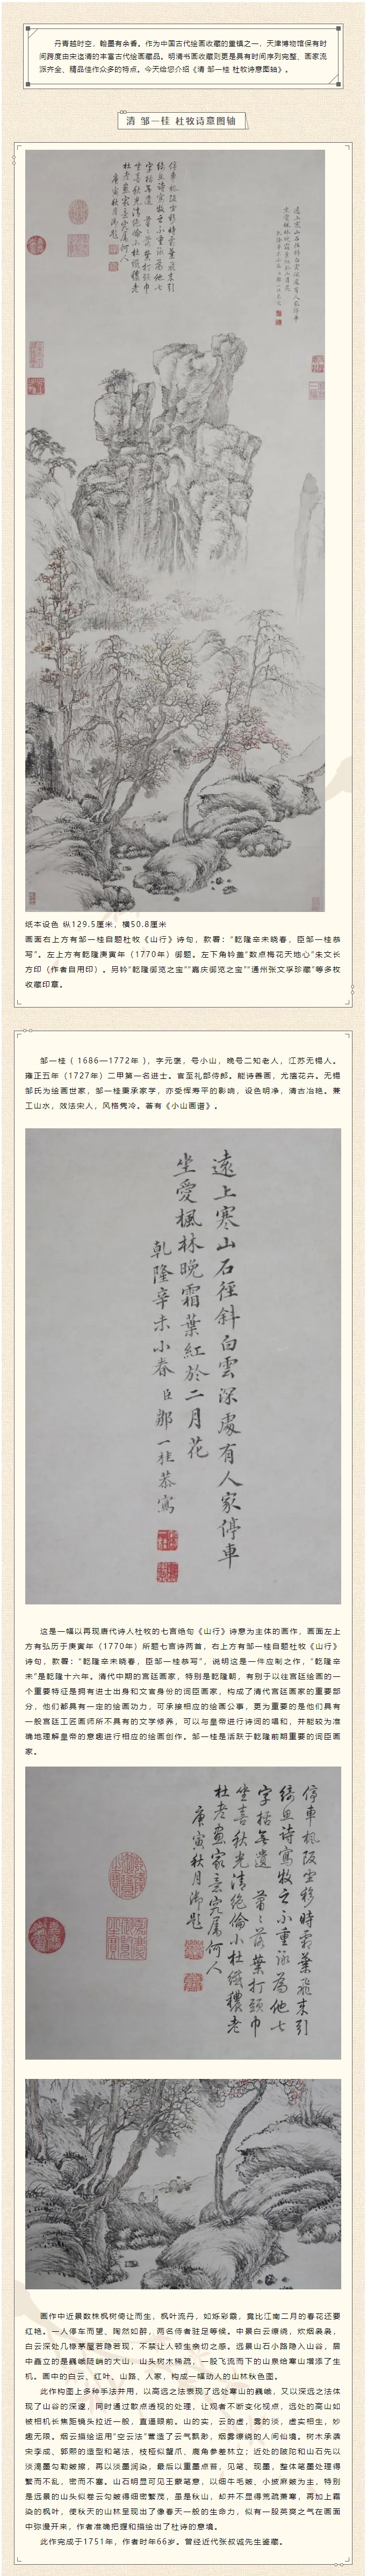 丹青越时空，翰墨有余香。作为中国古代绘画收藏的重镇之一，天津博物馆保有时
间跨度由宋迄清的丰富古代绘画藏品。明清书画收藏则更是具有时间序列完整、画家流
派齐全、精品佳作众多的特点。今天给您介绍《清 邹一桂 杜牧诗意图轴》。
清 邹一桂 杜牧诗意图轴
纸本设色 纵129.5厘米，横50.8厘米
画面右上方有邹一桂自题杜牧《山行》诗句，款署：“乾隆辛未晓春，臣邹一桂恭
写”。左上方有乾隆庚寅年（1770年）御题。左下角钤盖“数点梅花天地心”朱文长
方印（作者自用印）。另钤“乾隆御览之宝”“嘉庆御览之宝”“通州张文孚珍藏”等多枚
收藏印章。
邹一桂（ 1686—1772年 ），字元褒，号小山，晚号二知老人，江苏无锡人。
雍正五年（1727年）二甲第一名进士。官至礼部侍郎。能诗善画，尤擅花卉。无锡
邹氏为绘画世家，邹一桂秉承家学，亦受恽寿平的影响，设色明净，清古冶艳。兼
工山水，效法宋人，风格隽冷。著有《小山画谱》。
遠上寒山石徑斜白雲深處有人家停車
坐愛楓林晚霜葉紅於二月花
乾隆辛未小春臣鄒一桂恭寫
这是一幅以再现唐代诗人杜牧的七言绝句《山行》诗意为主体的画作，画面左上
方有弘历于庚寅年（1770年）所题七言诗两首，右上方有邹一桂自题杜牧《山行》
诗句，款署：“乾隆辛未晓春，臣邹一桂恭写”，说明这是一件应制之作，“乾隆辛
未”是乾隆十六年。清代中期的宫廷画家，特别是乾隆朝，有别于以往宫廷绘画的一
个重要特征是拥有进士出身和文官身份的词臣画家，构成了清代宫廷画家的重要部
分，他们都具有一定的绘画功力，可承接相应的绘画公事，更为重要的是他们具有
一般宫廷工匠画师所不具有的文学修养，可以与皇帝进行诗词的唱和，并能较为准
确地理解皇帝的意趣进行相应的绘画创作。邹一桂是活跃于乾隆前期重要的词臣画
家。
停車楓阪坐移時霜葉飛来引
綺思詩寫牧之不重詠為他七
字括無遺 蕭〻落葉打頭巾
坐喜秋光清絶倫小杜纖穠老
杜老畫家意究屬何人
庚寅秋月御題
画作中近景数株枫树倚让而生，枫叶流丹，如烁彩霞，竟比江南二月的春花还要
红艳。一人停车而望、陶然如醉，两名侍者驻足等候。中景白云缭绕，炊烟袅袅，
白云深处几椽茅屋若隐若现，不禁让人顿生亲切之感。远景山石小路隐入山谷，居
中矗立的是巍峨陡峭的大山，山头树木稀疏，一股飞流而下的山泉给寒山增添了生
机。画中的白云、红叶、山路、人家，构成一幅动人的山林秋色图。
此作构图上多种手法并用，以高远之法表现了远处寒山的巍峨，又以深远之法体
现了山谷的深邃，同时通过散点透视的处理，让观者不断变化视点，远处的高山如
被相机长焦距镜头拉近一般，直逼眼前。山的实，云的虚，雾的淡，虚实相生，妙
趣无限。烟云描绘运用“空云法”营造了云气飘渺，烟雾缭绕的人间仙境。树木承袭
宋李成、郭熙的造型和笔法，枝桠似蟹爪、鹿角参差林立；近处的陂陀和山石先以
淡湿墨勾勒皴擦，再以淡墨润染，最后以重墨点苔，见笔、现墨，整体笔墨处理得
繁而不乱，密而不塞。山石明显可见王蒙笔意，以细牛毛皴、小披麻皴为主，特别
是远景的山头似卷云勾皴得细密繁茂，虽是秋山，却并不显得荒疏萧寒，再加上霜
染的枫叶，使秋天的山林呈现出了像春天一般的生命力，似有一股英爽之气在画面
中弥漫开来，作者准确把握和描绘出了杜诗的意境。
此作完成于1751年，作者时年66岁。曾经近代张叔诚先生鉴藏。